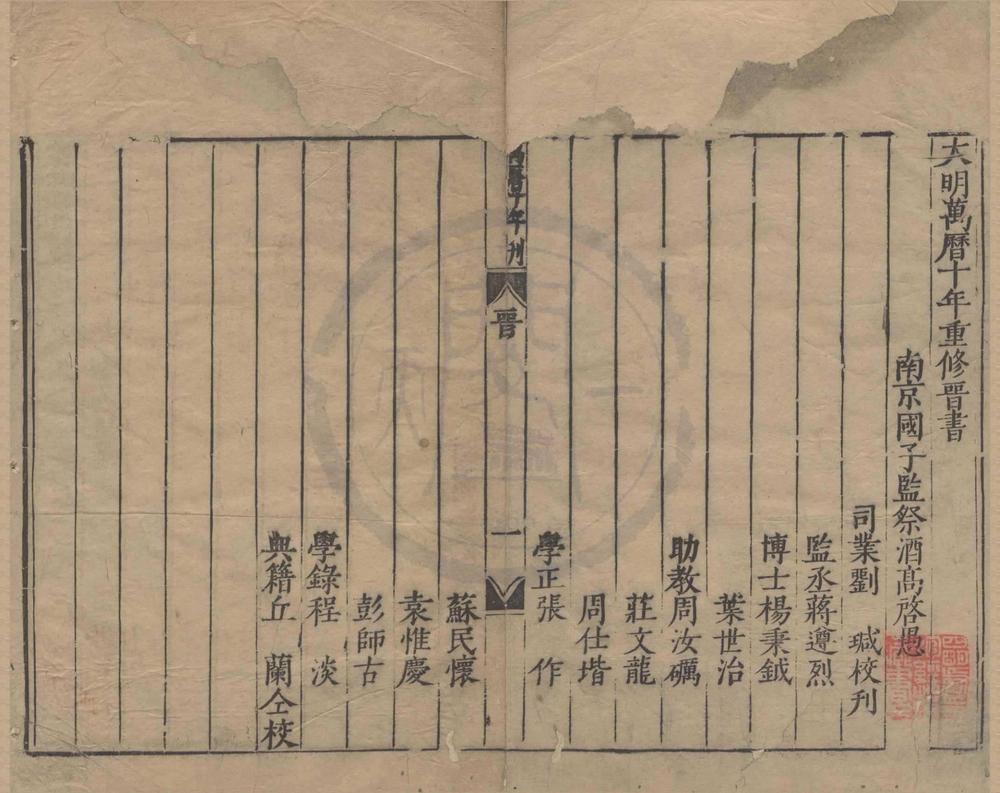 大明萬曆十年重修晉書
南京國子監祭酒高啓愚
司業劉　瑊校刊
監丞蔣遵烈
博士楊秉鉞
葉世治
助教周汝礪
莊文龍
周仕堦
學正張　作
曆十年刊
晉
一
蘇民懷
袁惟慶
彭師古
學錄程　淡
典籍丘　蘭仝校